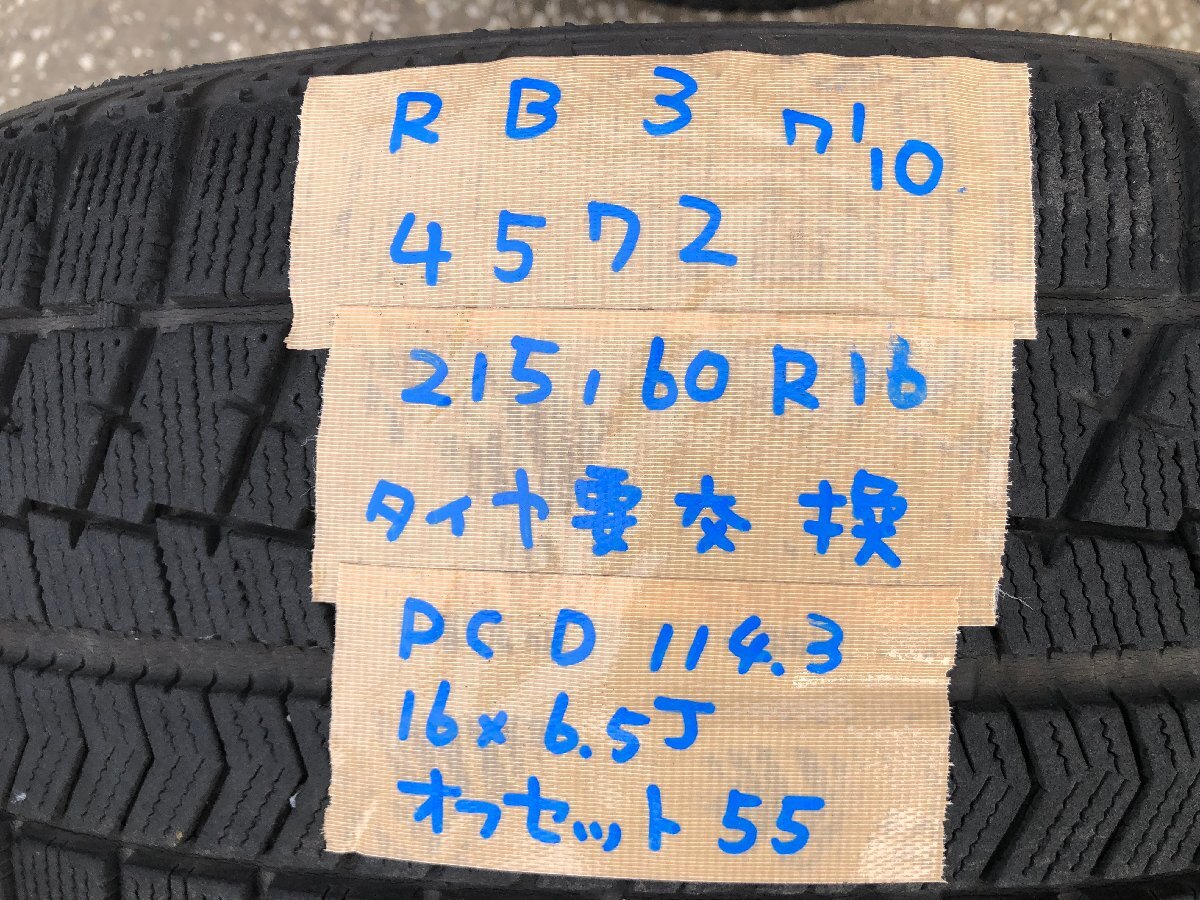 RB3 7/10
4572
215,60R16
タイヤ要交換
PCD114.3
16×6.5J
オフセット55